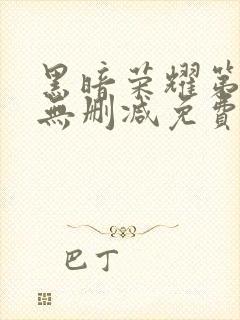 黑暗荣耀第
無删减免費
巴丁